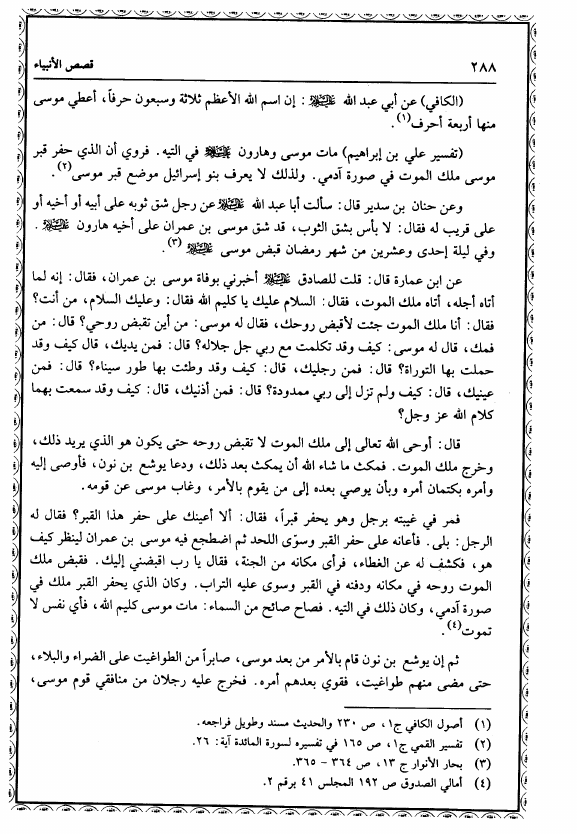 ٢٨٨
قصص الأنبياء
(الكافي) عن أبي عبد الله ﵇: إن اسم الله الأعظم ثلاثة وسبعون حرفاً، أعطي موسى
منها أربعة أحرف(١).
(تفسير علي بن إبراهيم) مات موسى وهارون ﵇ في التيه. فروي أن الذي حفر قبر
موسى ملك الموت في صورة آدمي. ولذلك لا يعرف بنو إسرائيل موضع قبر موسى(٢).
وعن حنان بن سدير قال: سألت أبا عبد الله ﵇ عن رجل شق ثوبه على أبيه أو أخيه أو
على قريب له فقال: لا بأس بشق الثوب، قد شق موسى بن عمران على أخيه هارون ﵇.
وفي ليلة إحدى وعشرين من شهر رمضان قبض موسى ﵇(٣).
عن ابن عمارة قال: قلت للصادق ﵇ أخبرني بوفاة موسى بن عمران، فقال: إنه لما
أتاه أجله، أتاه ملك الموت، فقال: السلام عليك يا كليم الله فقال: وعليك السلام، من أنت؟
فقال: أنا ملك الموت جئت لأقبض روحك، فقال له موسى: من أين تقبض روحي؟ قال: من
فمك، قال له موسى: كيف وقد تكلمت مع ربي جل جلاله؟ قال: فمن يديك، قال كيف وقد
حملت بها التوراة؟ قال: فمن رجليك، قال: كيف وقد وطئت بها طور سيناء؟ قال: فمن
عينيك، قال: كيف ولم تزل إلى ربي ممدودة؟ قال: فمن أذنيك، قال: كيف وقد سمعت بهما
كلام الله عز وجل؟
قال: أوحى الله تعالى إلى ملك الموت لا تقبض روحه حتى يكون هو الذي يريد ذلك،
وخرج ملك الموت. فمكث ما شاء الله أن يمكث بعد ذلك، ودعا يوشع بن نون، فأوصى إليه
وأمره بكتمان أمره وبأن يوصي بعده إلى من يقوم بالأمر، وغاب موسى عن قومه.
فمر في غيبته برجل وهو يحفر قبراً، فقال: ألا أعينك على حفر هذا القبر؟ فقال له
الرجل: بلى. فأعانه على حفر القبر وسوّى اللحد ثم اضطجع فيه موسى بن عمران لينظر كيف
هو، فكشف له عن الغطاء، فرأى مكانه من الجنة، فقال يا رب اقبضني إليك. فقبض ملك
الموت روحه في مكانه ودفنه في القبر وسوى عليه التراب. وكان الذي يحفر القبر ملك في
صورة آدمي، وكان ذلك في التيه. فصاح صائح من السماء: مات موسى كليم الله، فأي نفس لا
تموت(٤).
ثم إن يوشع بن نون قام بالأمر من بعد موسى، صابراً من الطواغيت على الضراء والبلاء،
حتى مضى منهم طواغيت، فقوي بعدهم أمره. فخرج عليه رجلان من منافقي قوم موسى،
(١) أصول الكافي ج١، ص ٢٣٠ والحديث مسند وطويل فراجعه.
(٢) تفسير القمي ج١، ص ١٦٥ في تفسيره لسورة المائدة آية: ٢٦.
(٣) بحار الأنوار ج ١٣، ص ٣٦٤ - ٣٦٥.
(٤) أمالي الصدوق ص ١٩٢ المجلس ٤١ برقم ٢.